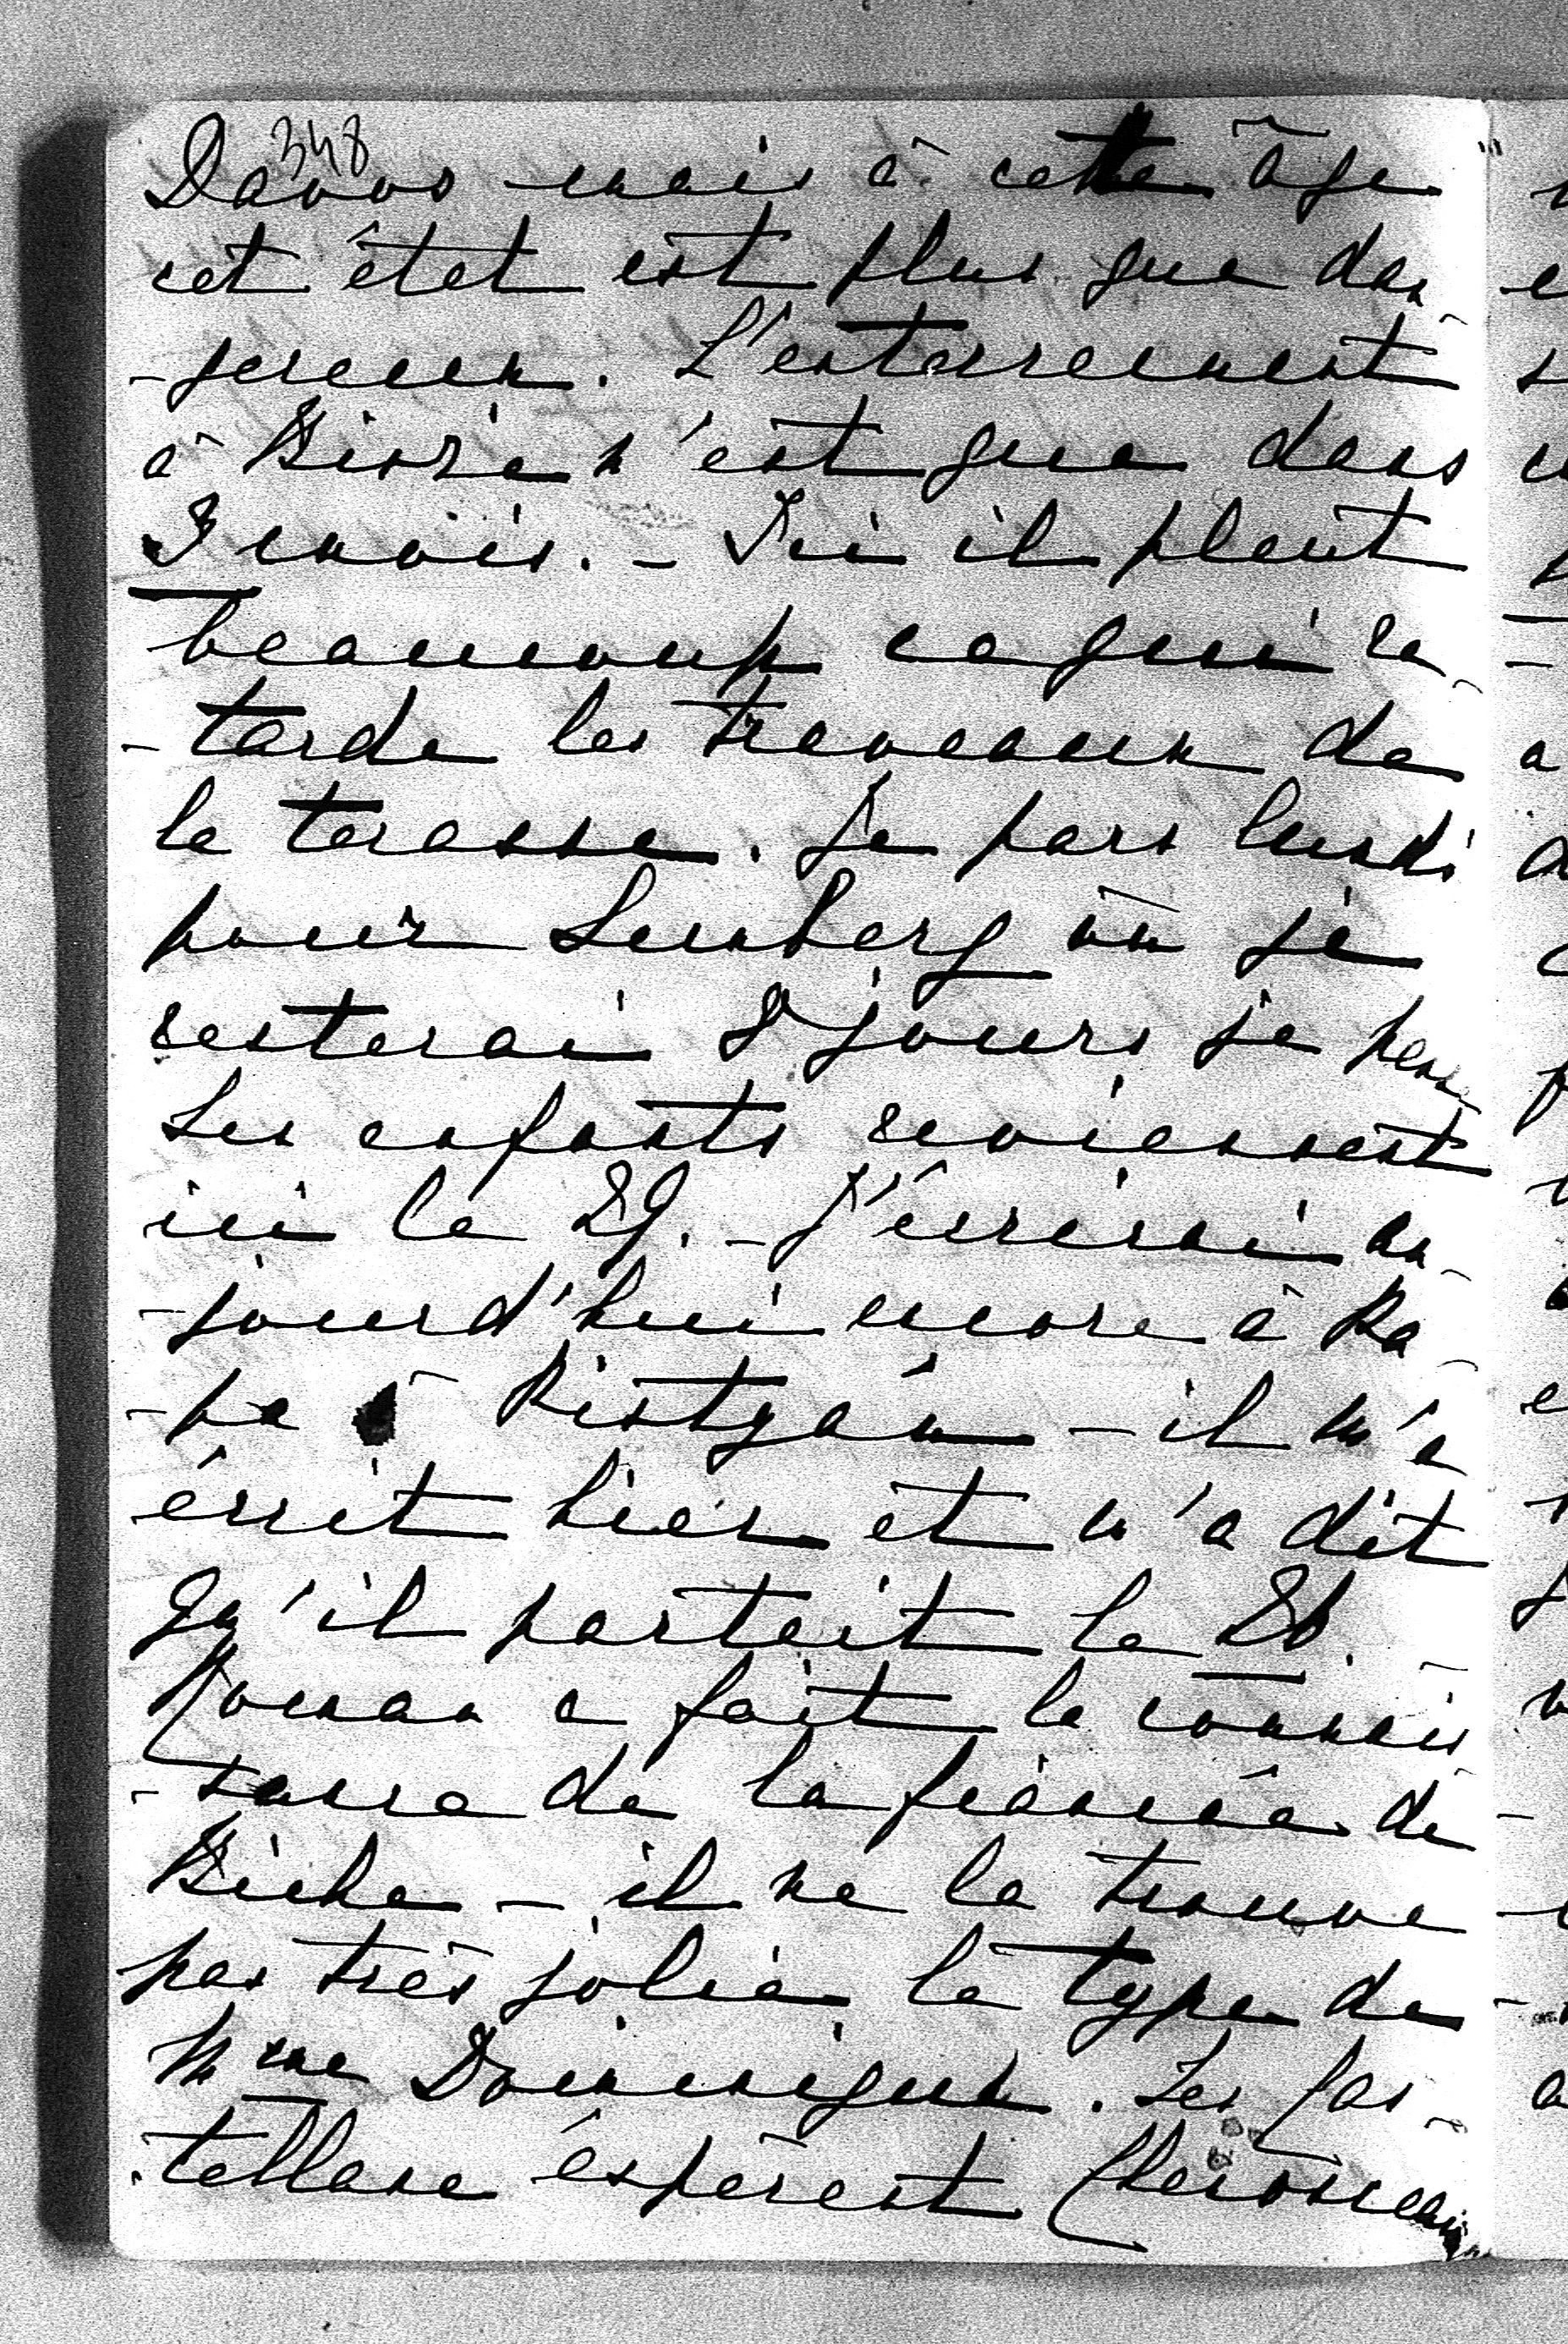 348
Davos mais à cette âge
cet état est plus que dan
-gereux. L'enterrement
à Bisrée n'est que dans
3 mois. - Ici il pleut
beaucoup ce qui re
-tarde les traveaux de
la terasse. Je pars lundi
pour Lemberg où je
resterai 8 jours je pense
Les enfants reviennent
ici le 29. - J'écrirai au
-jourd'hui encore à Pa
-pa à Pistyán - il m'a
écrit hier et m'a dit
qu'il partait le 26.
Roman a fait la connais
-sance de la fiancée de
Biche - il ne la trouve
pas très jolie le type de
Mme Dominique. Les Cas
-tellane espèrent